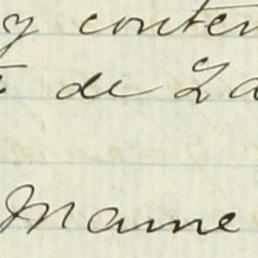 y conten
de La
Mame